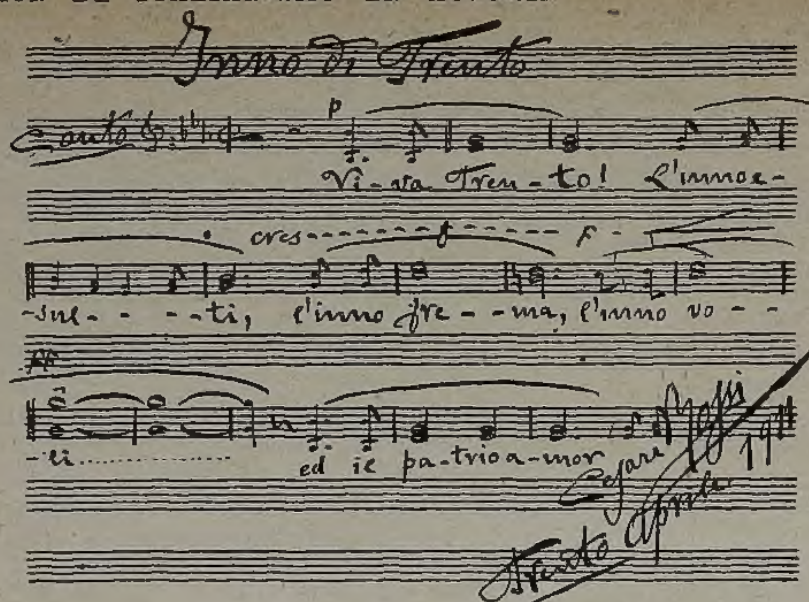 Inno di Trento
Canto
p
Vi-va Tren-to! L'inno e-
cres - - - - - f - - - - - F -
-sul- - -ti, l'inno fre--ma, l'inno vo--
ff
-li.............. ed il pa-trio a-mor
Cesare
Trento Aprile 19